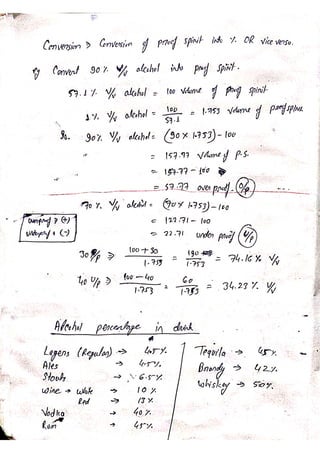 Conversion ⇒ Conversion of proof spirit into %. OR vice versa.
Eg Convert 90% V/V alcohol into proof spirit.
57.1% V/V alcohol = 100 volume of proof spirit
1% V/V alcohol = 100/57.1 = 1.753 volume of proof spirit.
So. 90% V/V alcohol = (90 x 1.753) - 100
= 157.77 volume of P.S.
= 157.77 - 100
= 57.77 over proof - O/P
70% V/V alcohol = (70 x 1.753) - 100
= 122.71 - 100
= 22.71 under proof U/P
overproof → (+)
underproof → (-)
30 O/P ⇒ 100 + 30/1.753 = 130/1.753 = 74.16% V/V
40 U/P ⇒ 100 - 40/1.753 = 60/1.753 = 34.23% V/V
Alcohol percentage in drink
Lagers (Regular) → 4.5%
Ales → 4.5%
Stouts → 6.5%
Wine → White → 10%
Red → 13%
Vodka → 40%
Rum → 45%
Tequila → 45%
Brandy → 42%
Whiskey → 50%